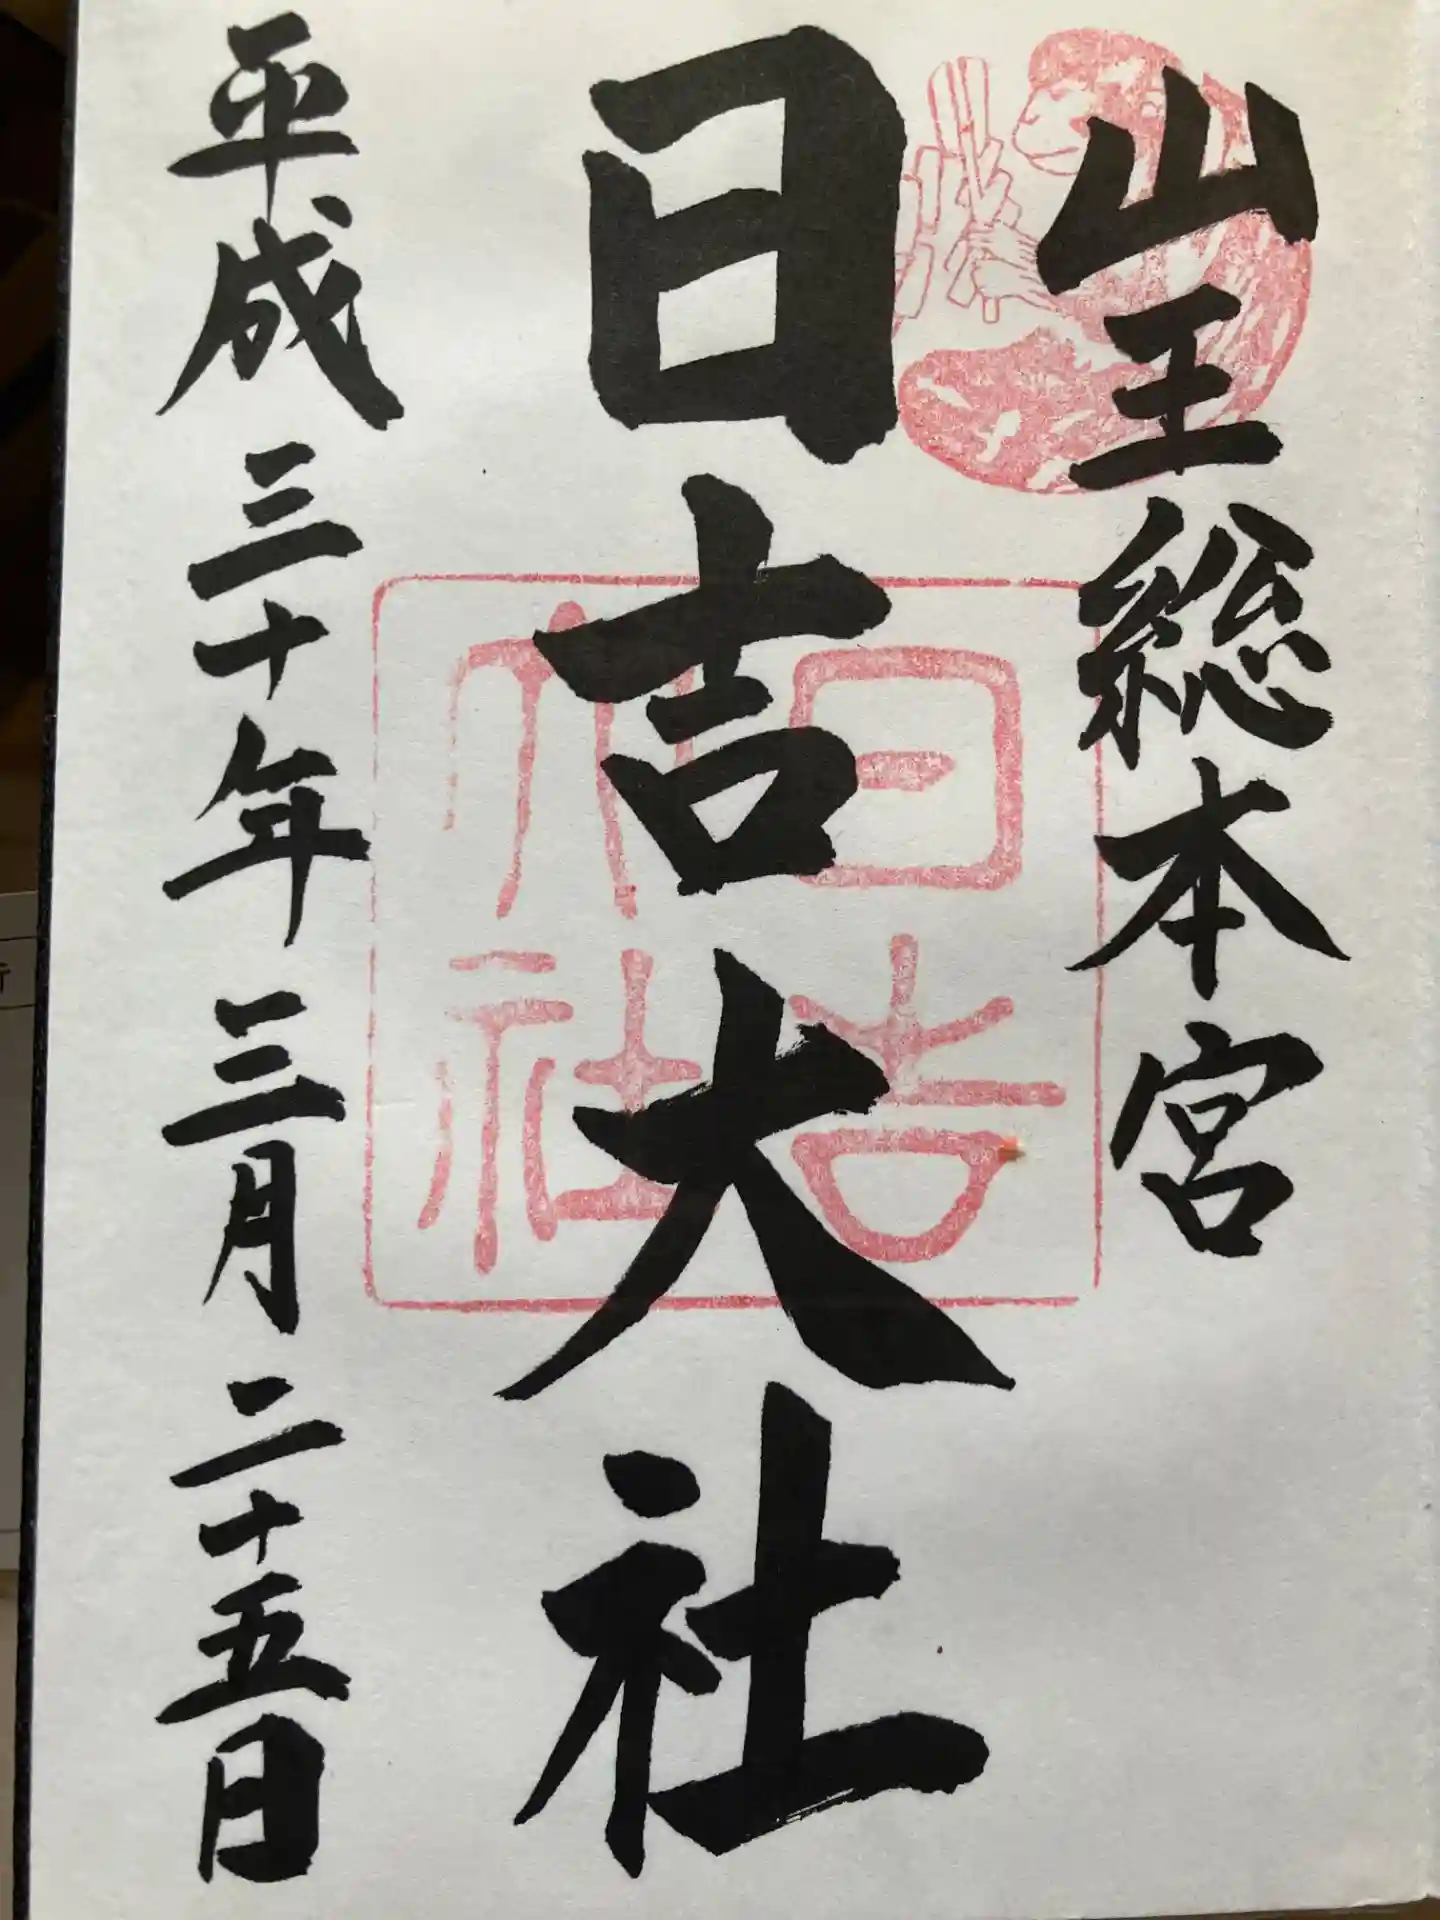 山王総本宮
日吉大社
平成三十年三月二十五日
日吉
大社